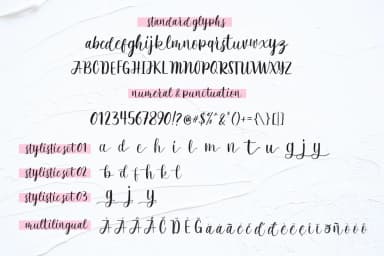 standard glyphs
abcdefghijklmnopqrstuvwxyz
ABCDEFGHIJKLMNOPQRSTUVWXYZ
numeral & punctuation
01234567890!?@#$%^&*()+={\}[]
stylistic set 01 a d e h i l m n t u g j y
stylistic set 02 b d f h k l
stylistic set 03 g j y
multilingual